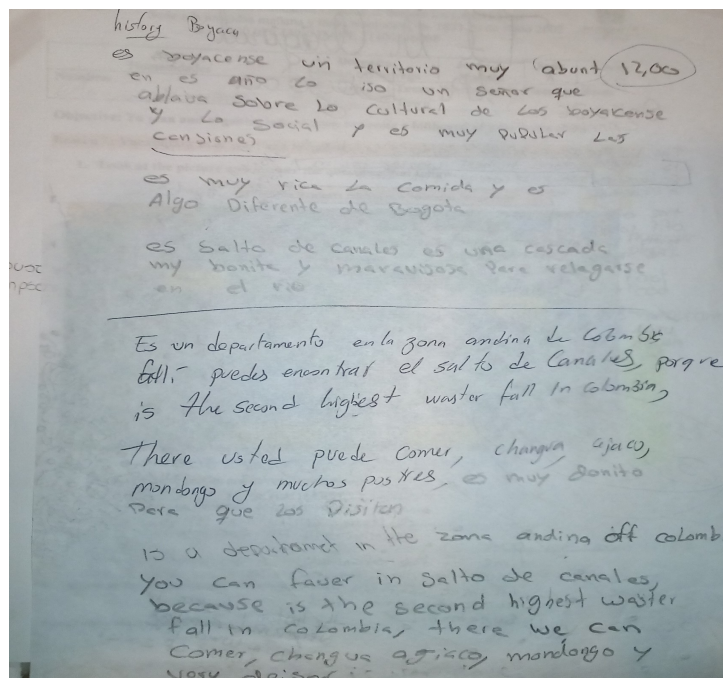 history Boyaca
es boyacense un territorio muy (abunt 12,00
en es año lo iso un señor que
ablava sobre Lo cultural de Los boyakense
y Lo social y es muy pupular Las
cansiones
es muy rica La comida y es
Algo Diferente de Bogota
es Salto de canales es una cascada
my bonita y para relagarse
en el rio
Es un departamento en la zona andina de
puedes encontrar el salto de Canales, porque
is the second highest waster fall In Colombia,
There usted puede Comer, changua, ajaco,
mondongo y muchos postres, es muy Bonito
Para que Los Disiten
is a in the zona andina off colomb
you can faver in Salto de canales,
because is the second highest waster
fall in coLombia, there we can
Comer, changua agiaco, mondongo y
very